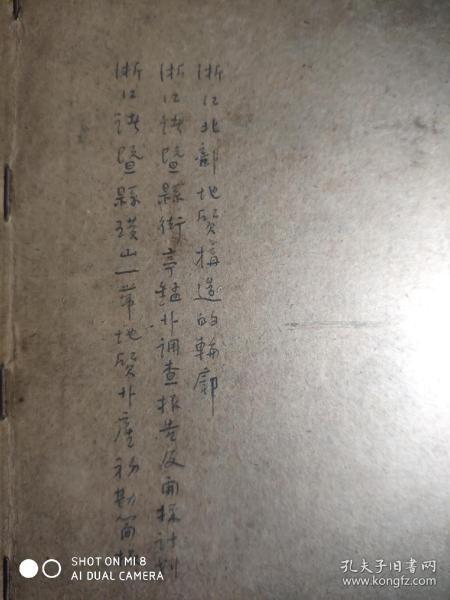 浙江北部地质構造的輪廓
浙江诸暨縣街亭錳卝调查报告及開採计划
浙江诸暨縣璜山一带地质卝產初勘简报
SHOT ON MI 8
AI DUAL CAMERA
孔夫子旧书网
www.kongfz.com